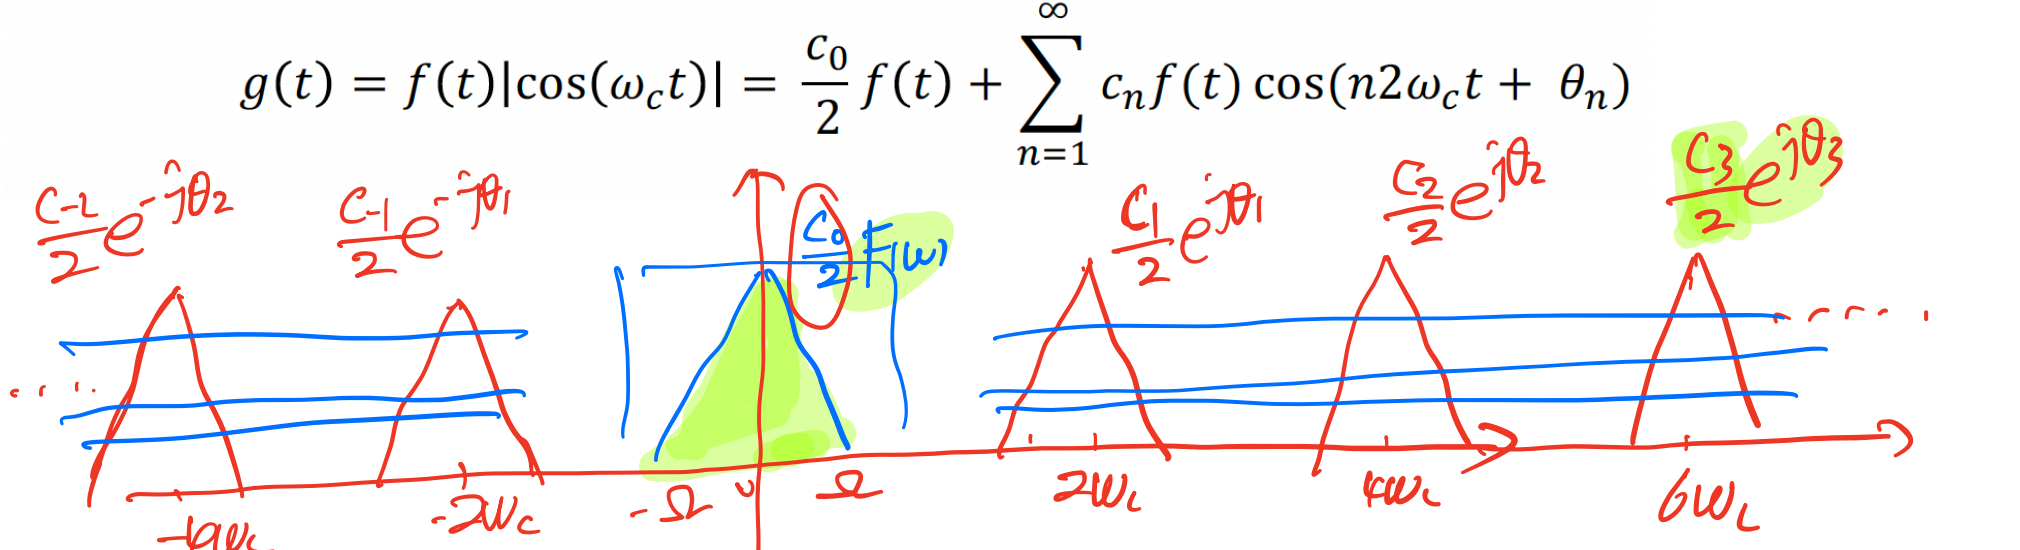 g(t) = f(t)|cos(ω_c t)| = c_0/2 f(t) + ∑_{n=1}^{∞} c_n f(t) cos(n2ω_c t + θ_n)
C_{-2}/2 e^{-jθ_2} C_{-1}/2 e^{-jθ_1} C_0/2 F(ω) C_1/2 e^{jθ_1} C_2/2 e^{jθ_2} C_3/2 e^{jθ_3}
-4ω_c -2ω_c -Ω 0 Ω 2ω_c 4ω_c 6ω_c